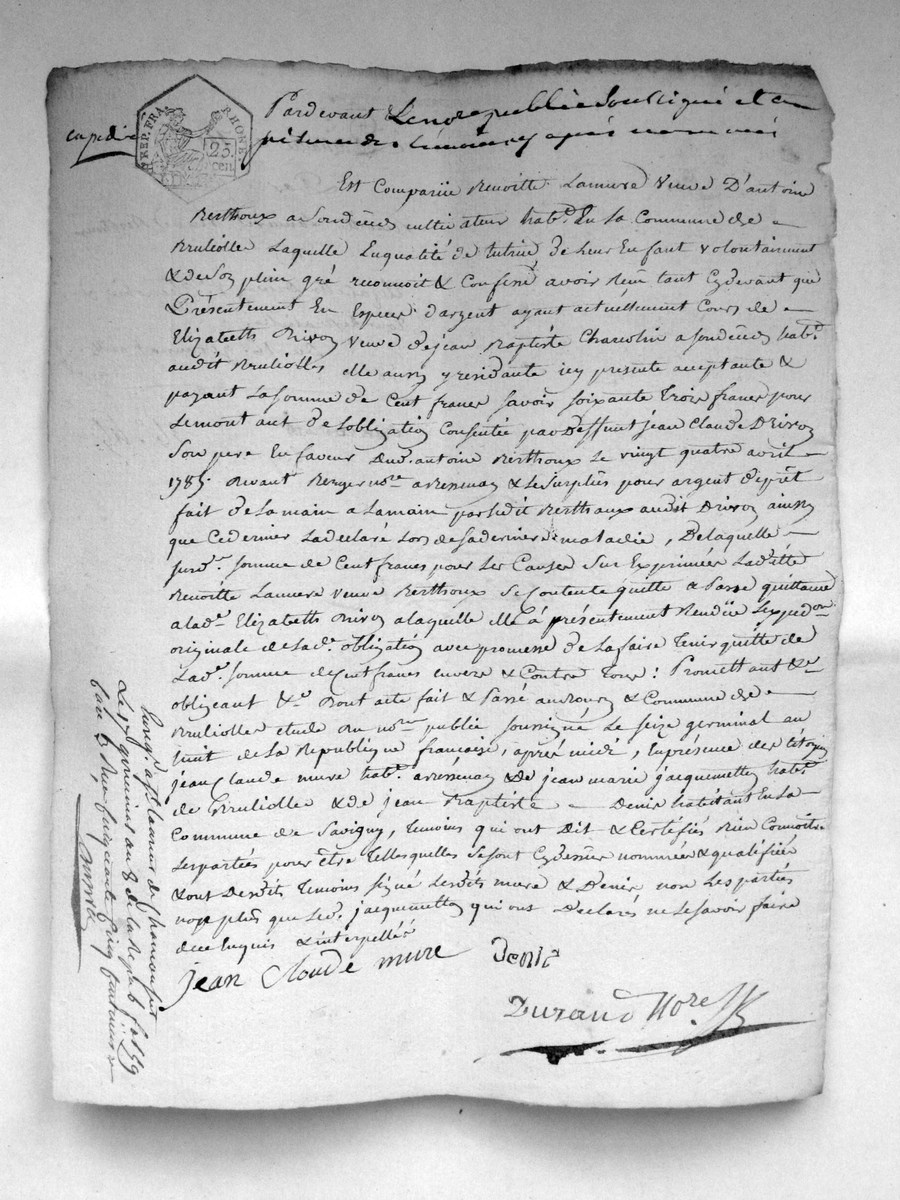 expedié
REP. FRA.
RHONE
25 cen
Pardevant Le nore public Soussigné et en
présence des témoins cy après nommés
Est Comparüe Benoitte Lamure Veuve D'antoine
Berthoux a Son décès cultivateur habt. En la Commune de
Brulliolle Laquelle En qualité de tutrice de leur Enfant volontairement
& de Son plein gré reconnoit & Confesse avoir Reçu tant Cydevant que
Présentement En Especes d'argent ayant actuellement Cours de
Elizabeth Drivon Veuve de jean Baptiste Charvolin a son décès habt.
audit Brulliolles elle aussy y residante icy presente acceptante &
payant La Somme de Cent francs savoir soixante Trois francs pour
Le montant de L'obligation Consentie par Deffunt jean Claude Drivon
Son pere En faveur Dud. antoine Berthoux Le vingt quatre avril
1785. devant nore a Bessenay & Le Surplus pour argent de prêt
fait de La main a La main par Ledit Berthoux audit Drivon ainsy
que Ce dernier La declaré Lors de sa derniere maladie, De laquelle
susd. somme de Cent francs pour Les Causes Sus Exprimées Laditte
Benoitte Lamure Veuve Berthoux Se Contente quitte & Passe quittance
a lad. Elizabeth Drivon a laquelle elle a présentement Rendüe L'expedon
originale de Lad. obligation avec promesse de La faire Tenir quitte de
Lad. somme de Cent francs envers & Contre Tous: Promettant &c
obligeant &c Dont acte fait & Passé au Bourg & Commune de
Brulliolle etude du nore public soussigné Le seize germinal an
huit de La Republique française, après midi, En présence des Citoyens
jean Claude mure habt. a Bessenay & De jean marie jacquemetton habt.
de Brulliolle & de jean Baptiste Denis habitant En La
Commune de Savigny, Temoins qui ont Dit & Certifiés Bien Connoitre
Les parties pour être Telles quelles Se sont Cy dessus nommées & qualifiées
& ont Lesdits Temoins signé Lesdits mure & Denis non Les parties
non plus que Led. jacquemetton qui ont Declarés ne Le savoir faire
de ce Enquis & interpellés
jean Claude mure
Denis
Durand Nore
Enregt. a St. Laurent de Chamousset
Le 17 germinal an 8 de la Repub fol. 59
Reçu Cinquante Cinq Centimes